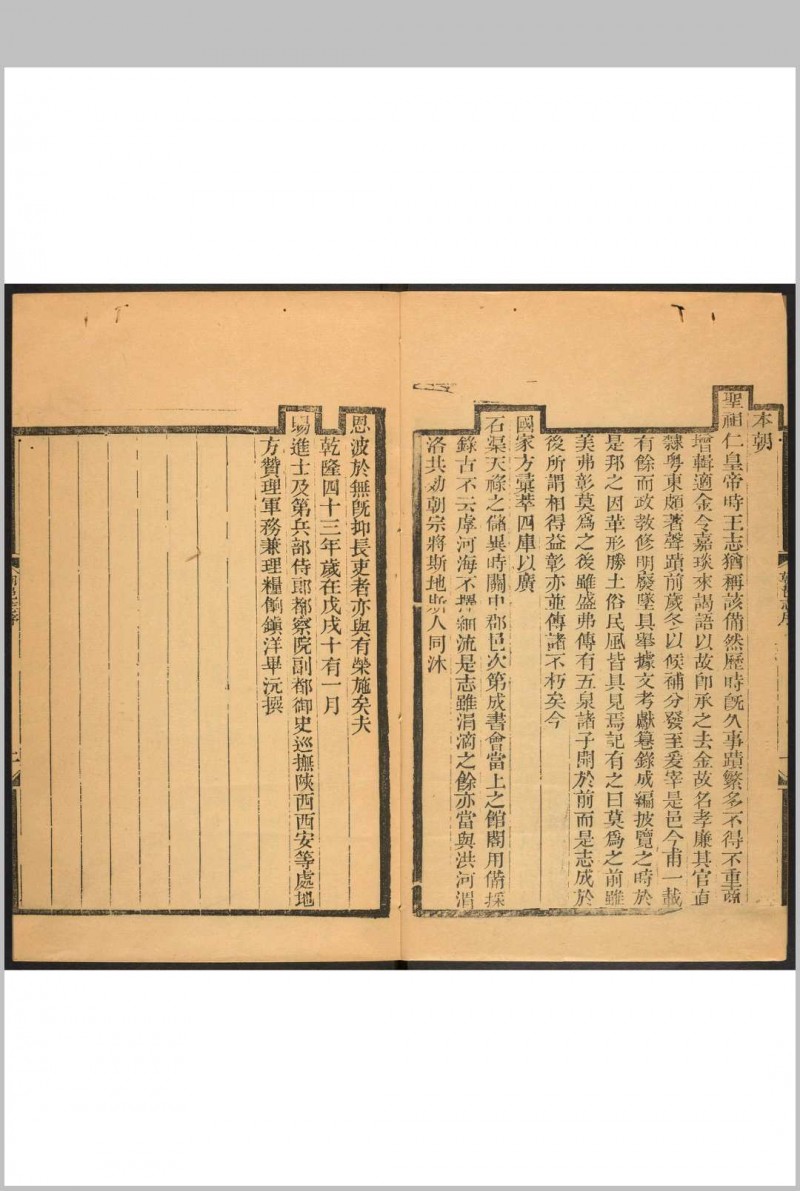 本朝
聖祖仁皇帝時王志猶稱該備然歷時旣久事蹟繁多不得不重憲
增輯適金令嘉琰來謁語以故卽承之去金故名孝廉其官直
隸粤東頗著聲蹟前歲冬以候補分發至爰宰是邑今甫一載
有餘而政敎修明廢墜具舉據文考獻纂錄成編披覽之時於
是邦之因革形勝土俗民風皆具見焉記有之曰莫爲之前雖
美弗彰莫爲之後雖盛弗傳有五泉諸子開於前而是志成於
後所謂相得益彰亦並傳諸不朽矣今
國家方彙萃四庫以廣
石渠天祿之儲異時關中郡邑次第成書會當上之館閣用備採
錄古不云虖河海不擇細流是志雖涓滴之餘亦當與洪河渭
洛共効朝宗將斯地斯人同沐
恩波於無旣抑長吏者亦與有榮施矣夫
乾隆四十三年歲在戊戌十有一月
賜進士及第兵部侍郎都察院副都御史巡撫陝西西安等處地
方贊理軍務兼理糧餉鎭洋畢沅撰